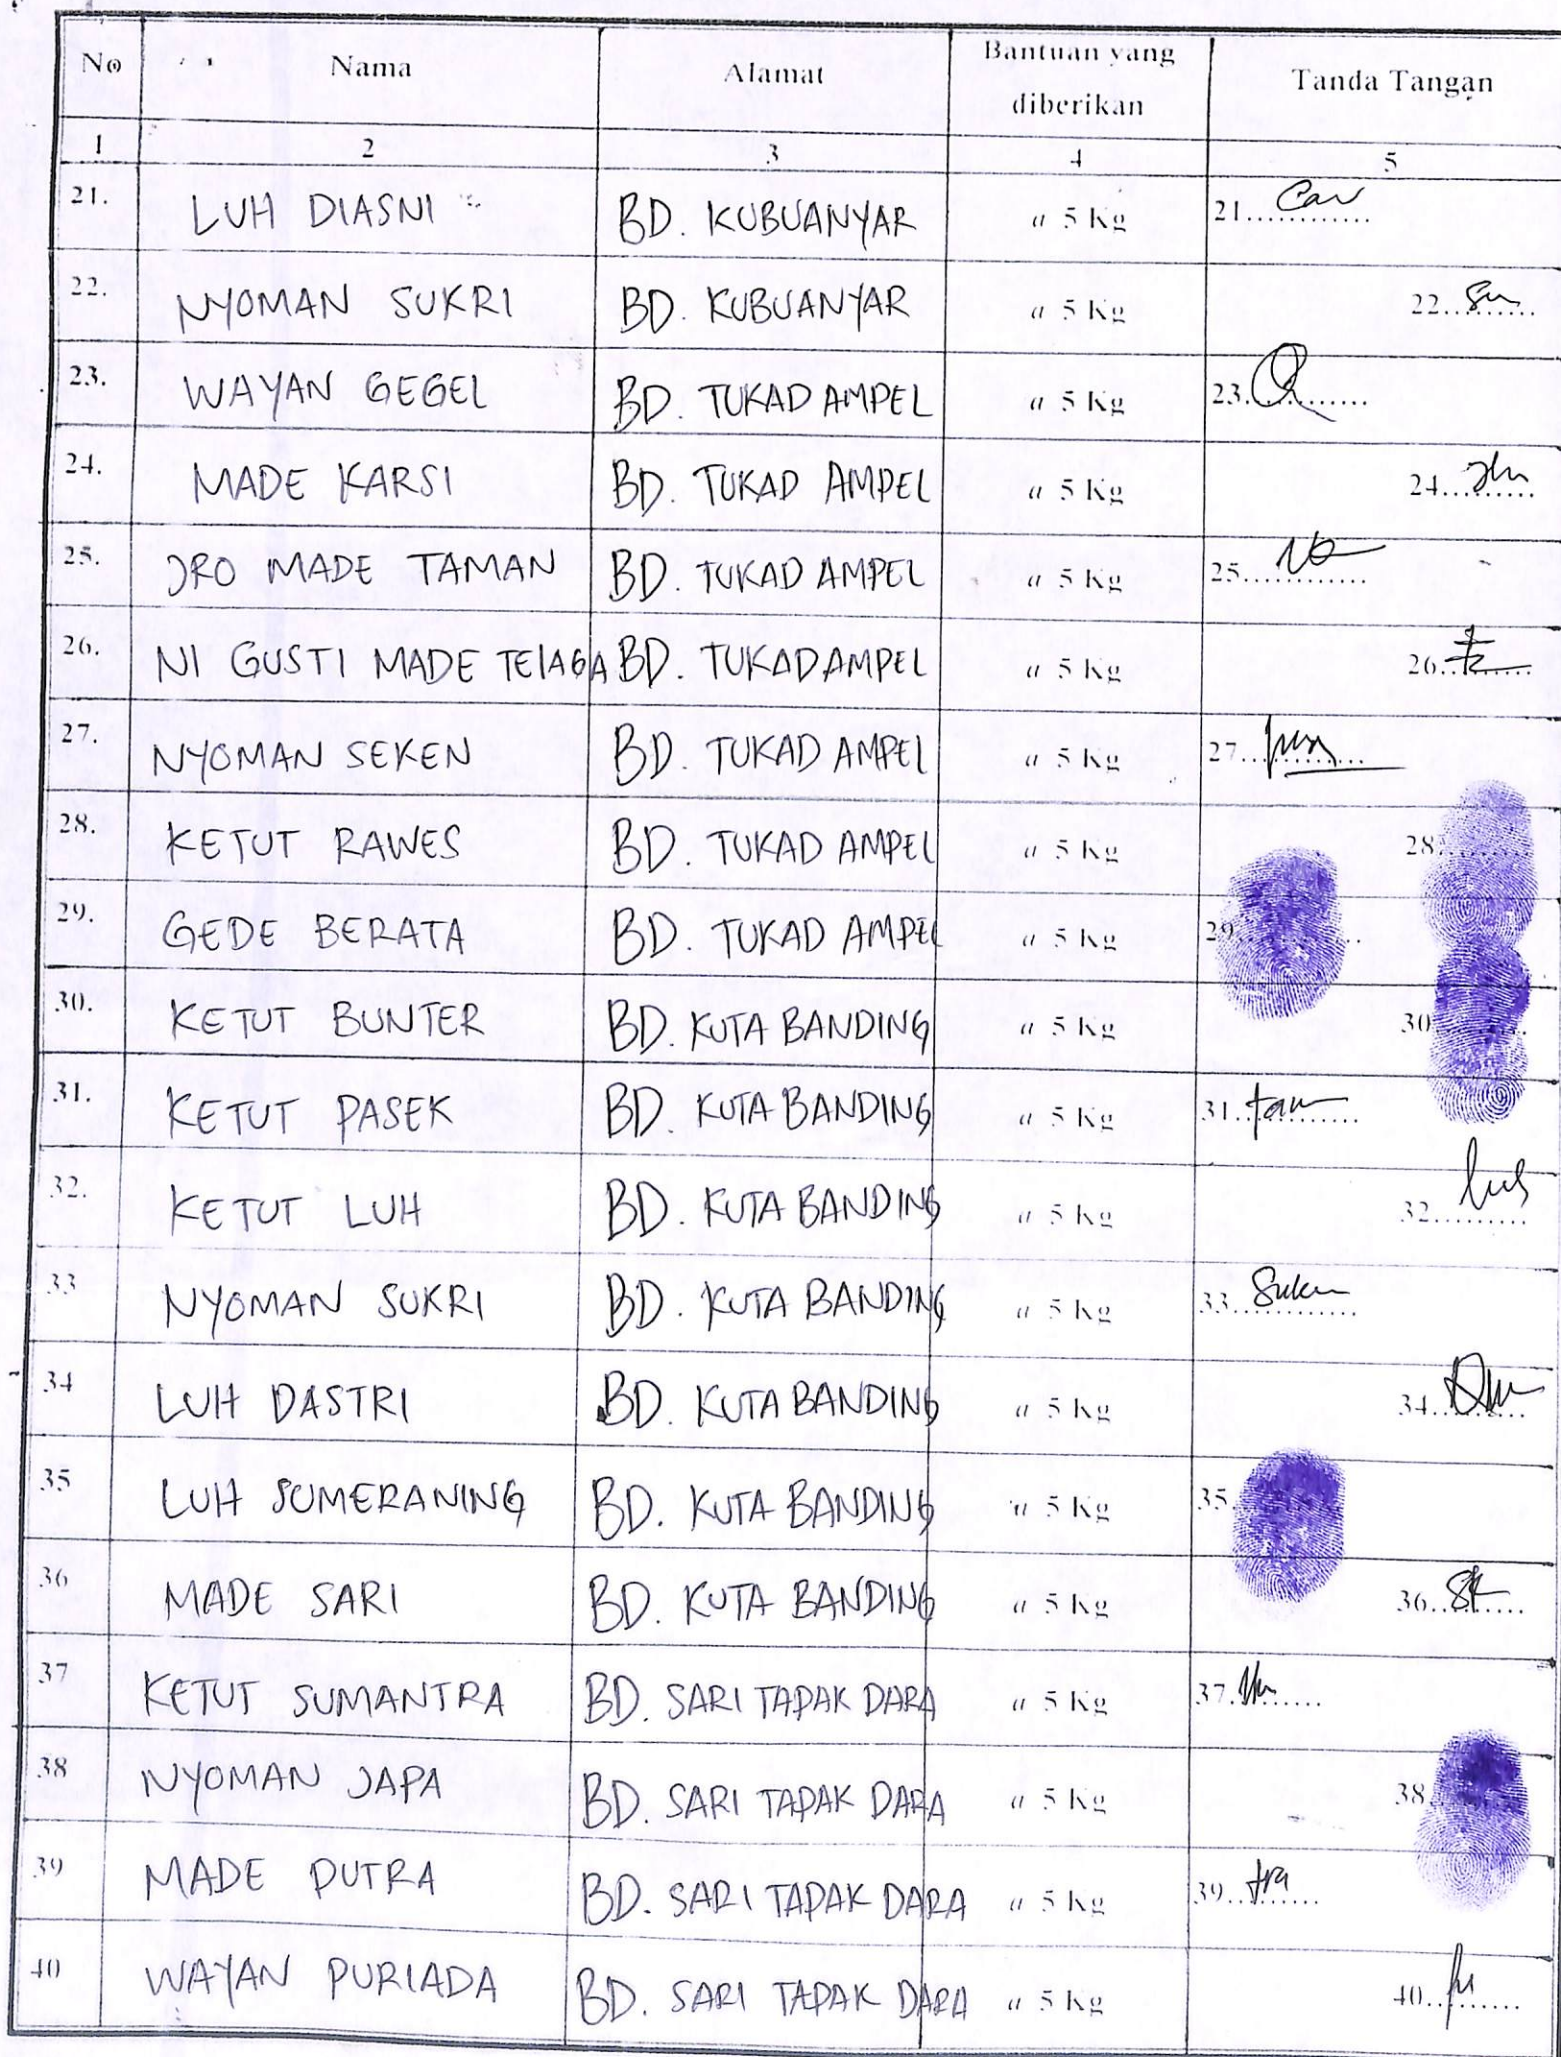 No Nama Alamat Bantuan yang diberikan Tanda Tangan
1 2 3 4 5
21. LUH DIASNI BD. KUBUANYAR a 5 Kg 21............
22. NYOMAN SUKRI BD. KUBUANYAR a 5 Kg 22.........
23. WAYAN GEGEL BD. TUKAD AMPEL a 5 Kg 23............
24. MADE KARSI BD. TUKAD AMPEL a 5 Kg 24.........
25. JRO MADE TAMAN BD. TUKAD AMPEL a 5 Kg 25............
26. NI GUSTI MADE TElAGA BD. TUKAD AMPEL a 5 Kg 26.........
27. NYOMAN SEKEN BD. TUKAD AMPEL a 5 Kg 27............
28. KETUT RAWES BD. TUKAD AMPEL a 5 Kg 28.........
29. GEDE BERATA BD. TUKAD AMPEL a 5 Kg 29............
30. KETUT BUNTER BD. KUTA BANDING a 5 Kg 30.........
31. KETUT PASEK BD. KUTA BANDING a 5 Kg 31............
32. KETUT LUH BD. KUTA BANDING a 5 Kg 32......... luh
33 NYOMAN SUKRI BD. KUTA BANDING a 5 Kg 33............
34 LUH DASTRI BD. KUTA BANDING a 5 Kg 34.........
35 LUH SUMERANING BD. KUTA BANDING a 5 Kg 35.
36 MADE SARI BD. KUTA BANDING a 5 Kg 36.........
37 KETUT SUMANTRA BD. SARI TAPAK DARA a 5 Kg 37.........
38 NYOMAN JAPA BD. SARI TAPAK DARA a 5 Kg 38.
39 MADE PUTRA BD. SARI TAPAK DARA a 5 Kg 39......... tra
40 WAYAN PURIADA BD. SARI TAPAK DARA a 5 Kg 40.........